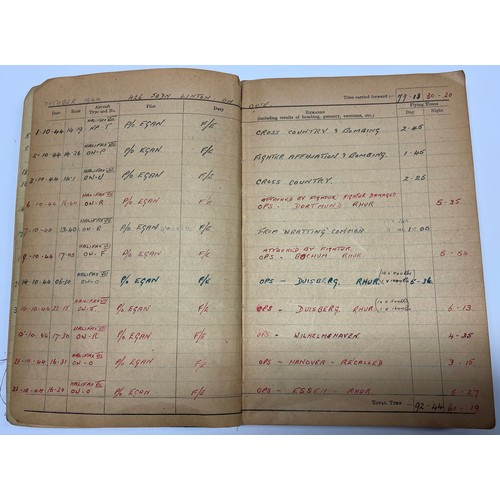 OCTOBER 1944 426 SQDN LINTON - ON OUSE Time carried forward :— 79-18 80-20
Date Hour Aircraft Type and No. Pilot Duty Remarks (including results of bombing, gunnery, exercises, etc.) Flying Times Day Night
1-10-44 14-19 HALIFAX VII P/O EGAN F/E CROSS COUNTRY & BOMBING 2-45
2-10-44 14-26 HALIFAX VII OW-P P/O EGAN F/E FIGHTER AFFILIATION & BOMBING. 1-45
HALIFAX VII OW-W P/O EGAN F/E CROSS COUNTRY. 2-25
6-10-44 16-40 HALIFAX VII OW-R P/O EGAN F/E ATTACKED BY FIGHTER, FIGHTER DAMAGED
OPS - DORTMUND RHUR 5-35
13-40 HALIFAX VII OW-R P/O EGAN F/E FROM WRATTING COMMON 1-00
9-10-44 17-05 HALIFAX VII OW-F P/O EGAN F/E ATTACKED BY FIGHTER
OPS - BOCHUM RHUR 5-54
14-10-44 06-30 HALIFAX VII OW-O P/O EGAN F/E OPS - DUISBERG. RHUR 5-36
14-10-44 22-15 HALIFAX VII P/O EGAN F/E OPS - DUISBERG. RHUR 6-13
15-10-44 17-30 HALIFAX VII OW-R P/O EGAN F/E OPS - WILHELMSHAVEN 4-35
16-31 HALIFAX VII OW-O P/O EGAN F/E OPS - HANOVER - RECALLED 3-15
16-24 HALIFAX VII OW-O P/O EGAN F/E OPS - ESSEN - RHUR 5-27
Total Time :— 92-44 61-19